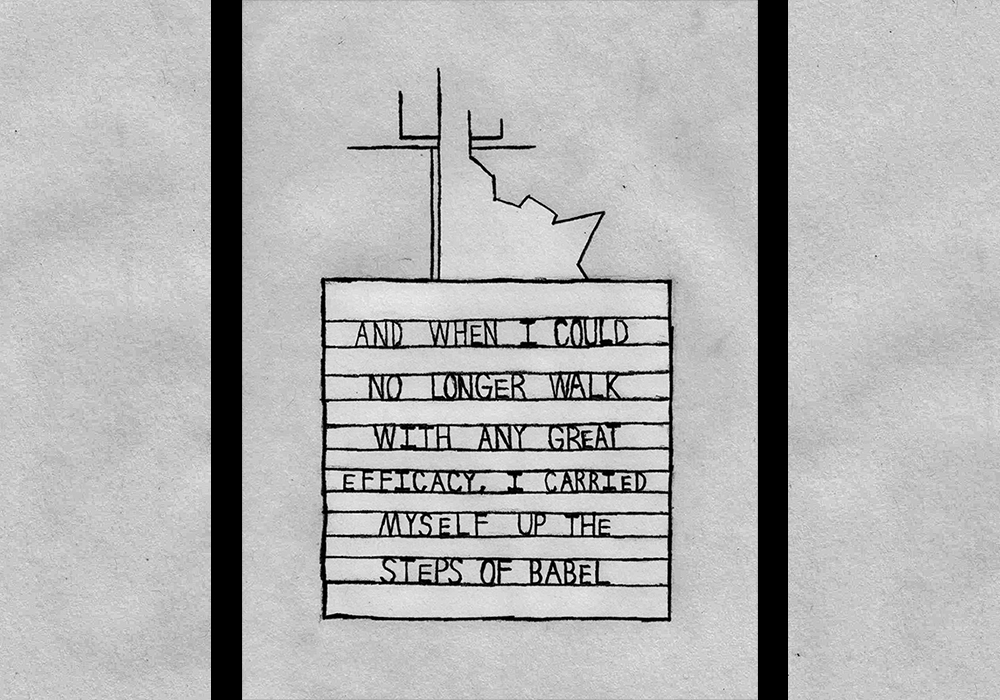 AND WHEN I COULD
NO LONGER WALK
WITH ANY GREAT
EFFICACY, I CARRIED
MYSELF UP THE
STEPS OF BABEL